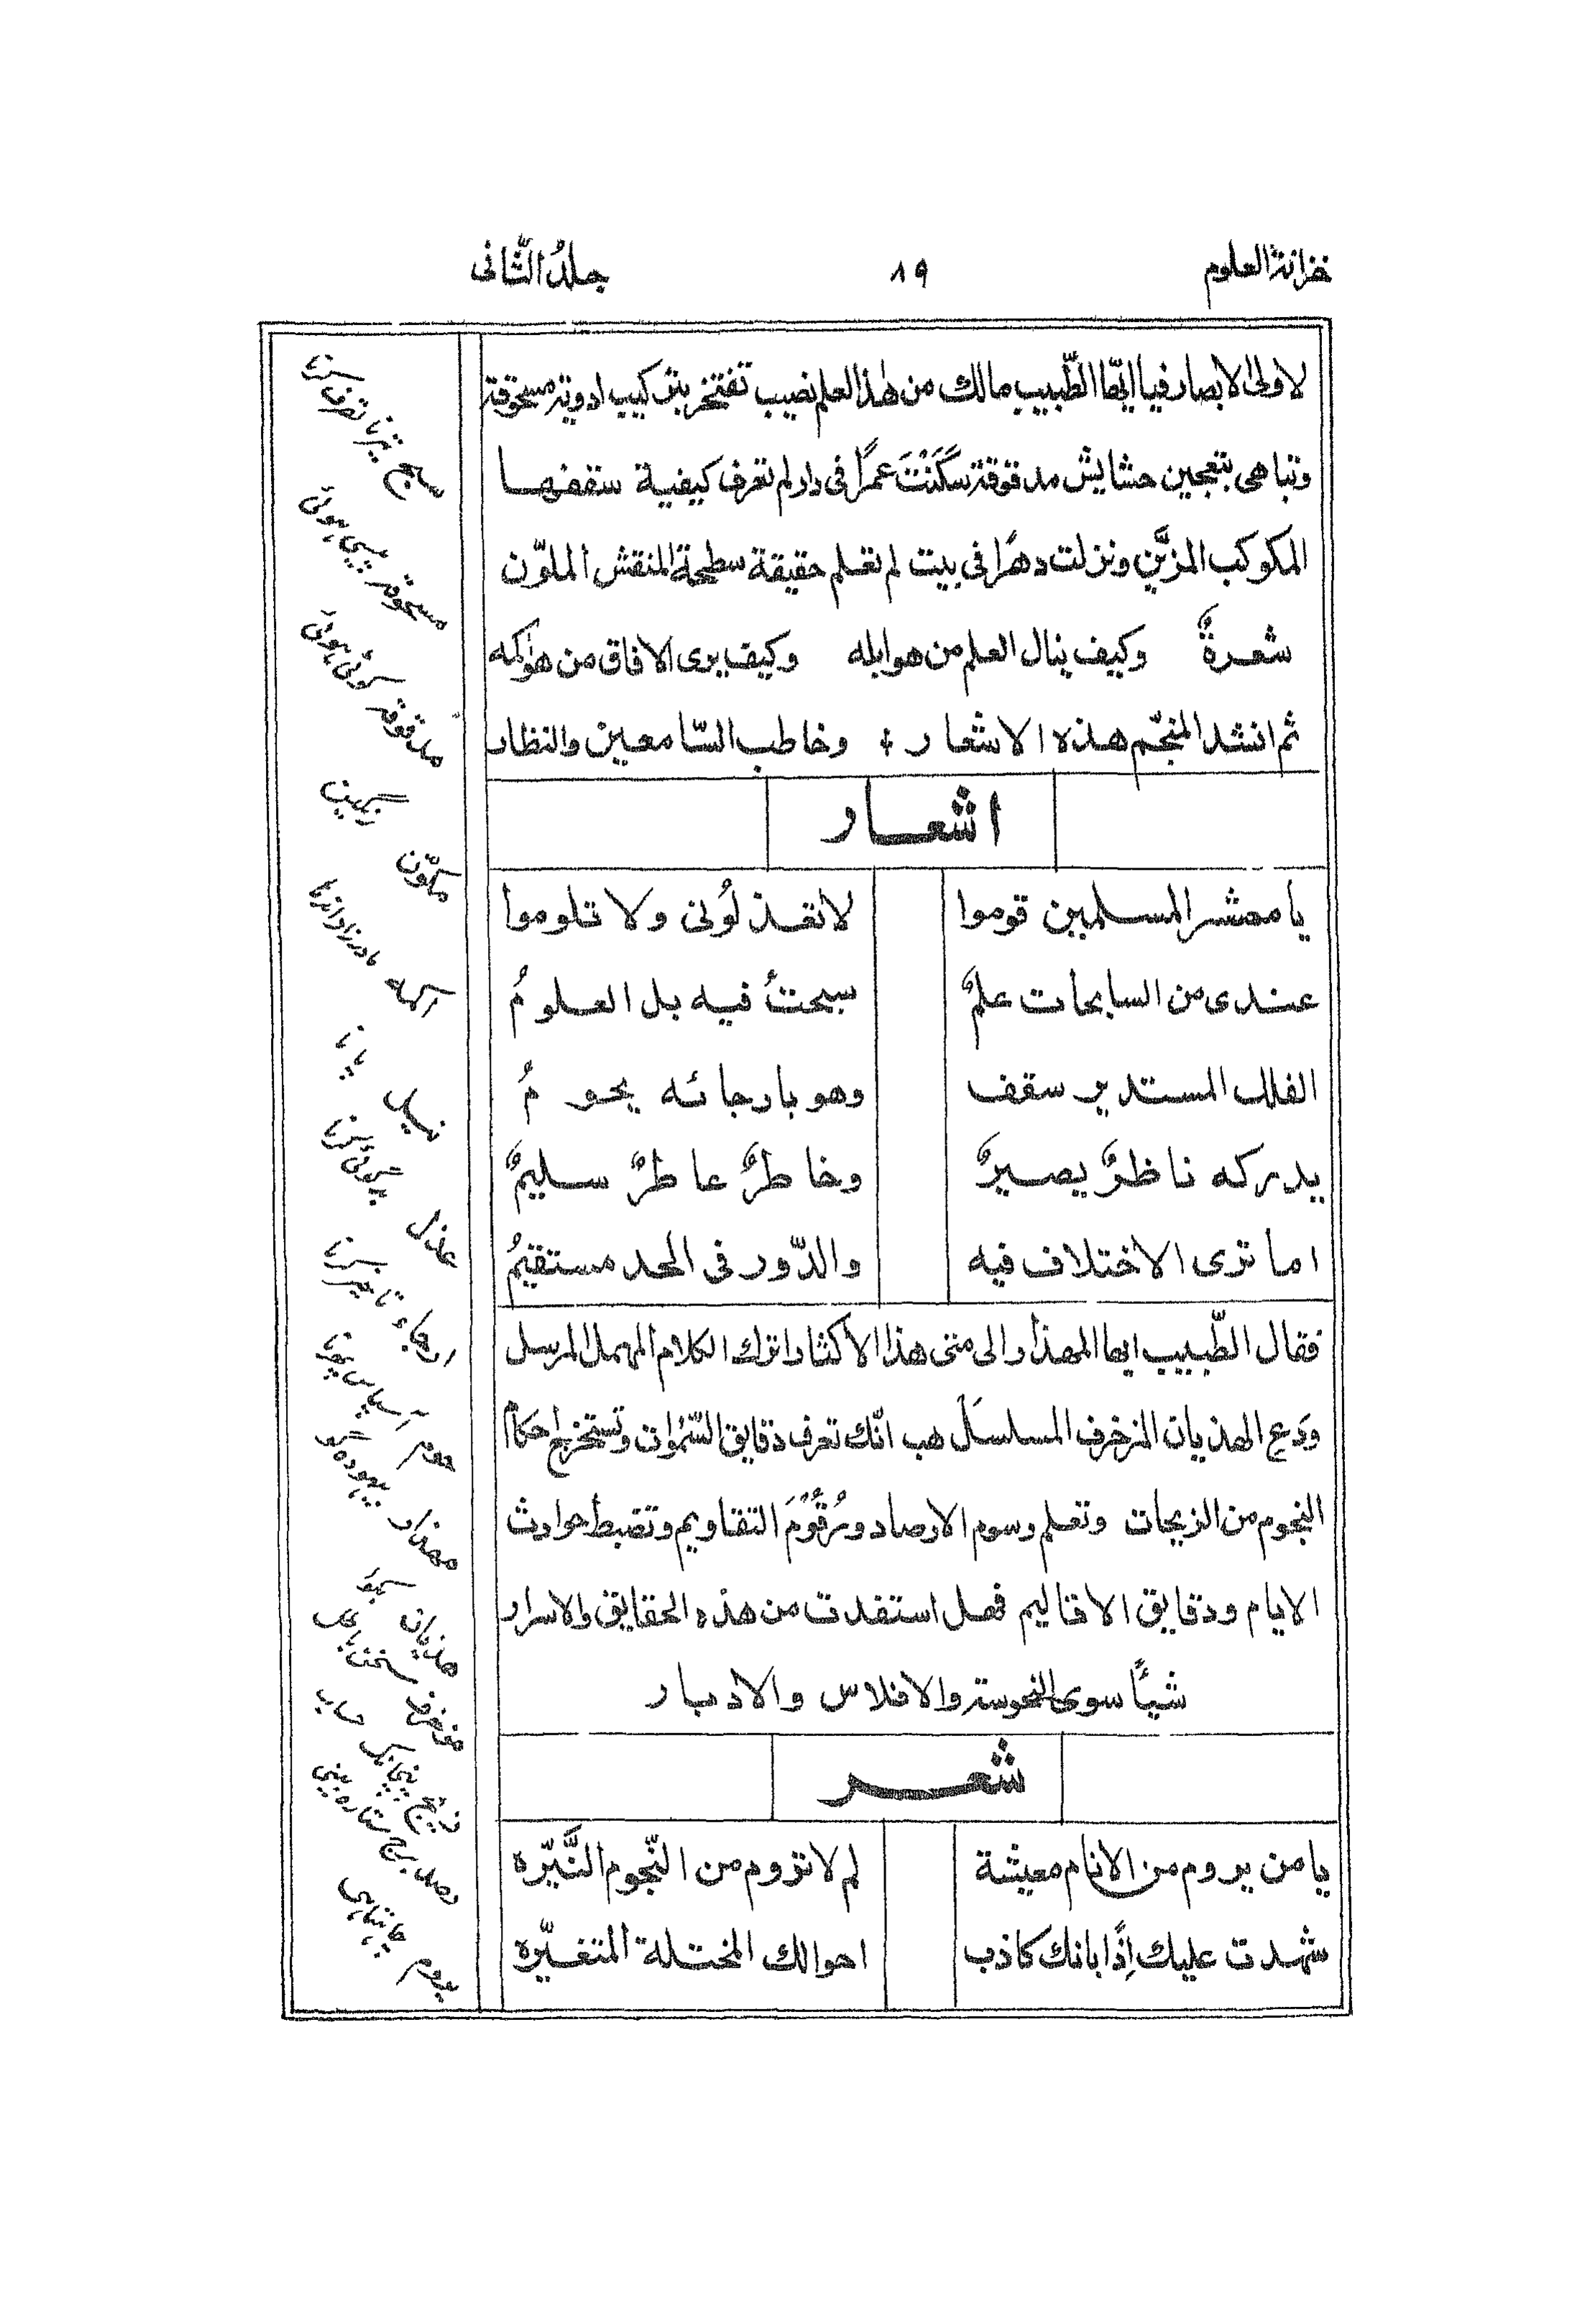 خزانة العلوم ۸۹ جلدُ الثّانی
لاولی الابصار فیا ایّها الطّبیب مالك من هذا العلم نصیب تفتخر بترکیب ادویة مسحوقة
وتباهی بتعجین حشایش مدقوقة سَكَنْتَ عمرًا فی دار لم تعرف کیفیة سقفها
المکوکب المزیَّن ونزلت دهرًا فی بیت لم تعلم حقیقة سطحة المنقش الملوّن
شعرةٌ وکیف ینال العلم من هوابله وکیف یری الافاق من هو اکمه
ثم انشد المنجّم هذه الاشعار ؛ وخاطب السّامعین والنظار
اشعار
یا معشر المسلمین قوموا لا تعذلُونی ولا تلوموا
عندی من السابحات علمٌ سبحتُ فیه بل العلومُ
الفلك المستدیر سقف وهو بارجائه یحومُ
یدرکه ناظرٌ بصیرٌ وخاطرٌ عاطرٌ سلیمٌ
اما تری الاختلاف فیه والدّور فی الحد مستقیمُ
فقال الطّبیب ایها المهذار الی متی هذا الاکثار اترك الکلام المهمل المرسل
وَدَعِ الهذیان المزخرف المسلسَل هب انّك تعرف دقایق السّمٰوات وتستخرج احکام
النجوم من الزیجات وتعلم رسوم الارصاد ورُقُوْمَ التقاویم وتضبط حوادث
الایام ودقایق الاقالیم فهل استفدت من هذه الحقایق والاسرار
شیئًا سوی النحوسة والافلاس والادبار
شعر
یا من یروم من الانام معیشة لم لا تروم من النّجوم النَّیّره
شهدت علیك اِذًا بانك کاذب احوالك المختلة المتغیّره
سبح تیرنا تصرف کرنا
مسحوقہ پسی ہوئی
مدقوقہ کوٹی ہوئی
ملوّن رنگین
اکمه مادرزاد اندہا
نیل پانا
عذل
ارجاء تاخیر کرنا
حوم آسپاس پھرنا
مهذار بیہودہ گو
هذیان
مزخرف
زیج
رصد برج ستارہ بینی
یروم چاہتا ہی